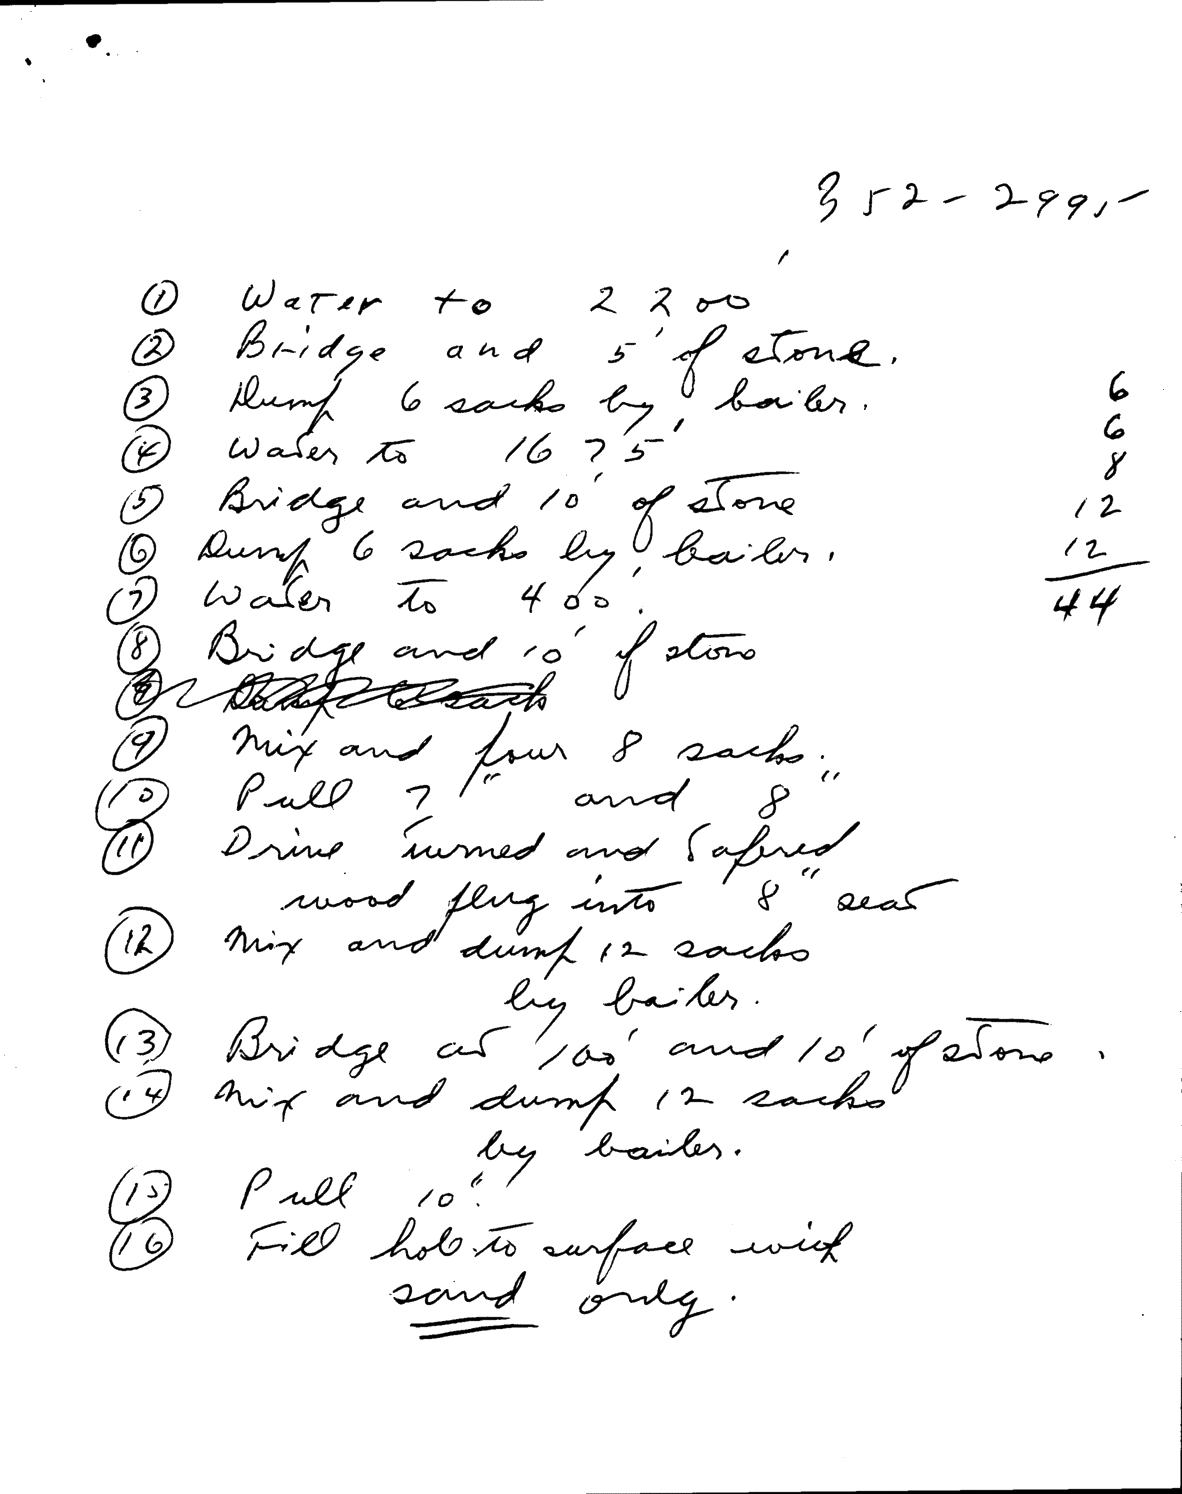 352-2995
① Water to 2200'
② Bridge and 5' of stone.
③ Dump 6 sacks by bailer. 6
④ Water to 1675' 6
8
⑤ Bridge and 10' of stone 12
⑥ Dump 6 sacks by bailer. 12
⑦ Water to 400'. 44
⑧ Bridge and 10' of stone
⑨ Mix and pour 8 sacks.
⑩ Pull 7" and 8"
⑪ Drive turned and tapered
wood plug into 8" seat
⑫ Mix and dump 12 sacks
by bailer.
⑬ Bridge at 100' and 10' of stone.
⑭ Mix and dump 12 sacks
by bailer.
⑮ Pull 10".
⑯ Fill hole to surface with
sand only.